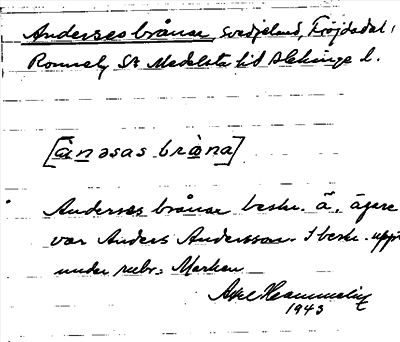 Anderses brånar, svedjeland, Fröjdadal,
Ronneby Sn Medelsta hd Blekinge l.
[ànəsas bràna]
Anderses brånar beskr. ä. ägare
var Anders Andersson. I beskr. uppt
under rubr. Marken
Axel
1943